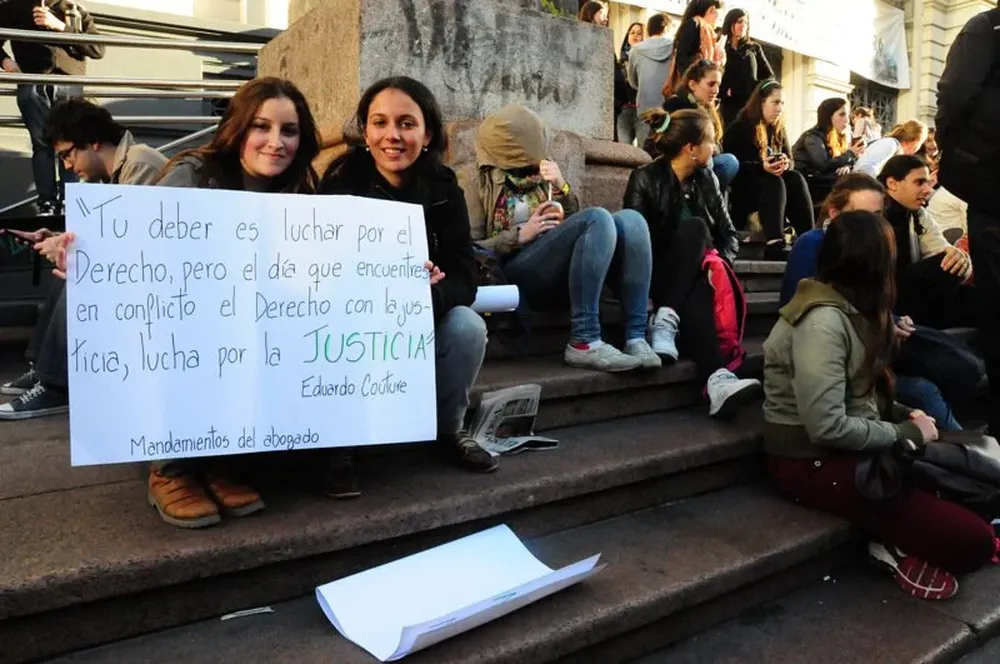 "Tu deber es luchar por el
Derecho, pero el día que encuentres
en conflicto el Derecho con la jus-
ticia, lucha por la JUSTICIA"
Eduardo Couture
Mandamientos del abogado